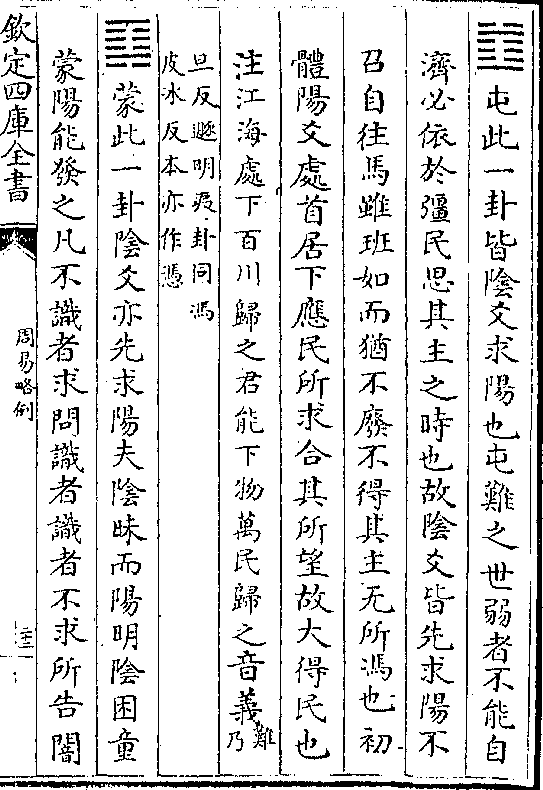 ䷂屯此一卦皆陰爻求陽也屯難之世弱者不能自
濟必依於彊民思其主之時也故陰爻皆先求陽不
召自往馬雖班如而猶不廢不得其主无所馮也初
體陽爻處首居下應民所求合其所望故大得民也
注江海處下百川歸之君能下物萬民歸之音義難乃
旦反遯明夷卦同馮
皮冰反本亦作憑
䷃蒙此一卦陰爻亦先求陽夫陰昧而陽明陰困童
蒙陽能發之凡不識者求問識者識者不求所告闇
欽定四庫全書
周易略例